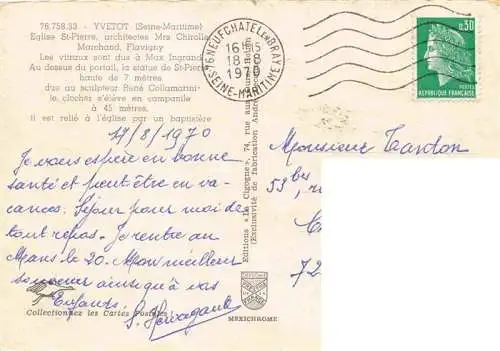 76.758.33 - YVETOT (Seine-Maritime)
Eglise St-Pierre, architectes Mrs Chirolle
Marchand, Flavigny
Les vitraux sont dus à Max Ingrand
Au dessus du portail, la statue de St-Pierre
haute de 7 mètres
due au sculpteur René Collamarini
le clocher s'élève en campanile
à 45 mètres.
Il est relié à l'église par un baptistère
17/8/1970
Je vous espère en bonne
santé et peut être en va-
cances. Séjour pour moi de
tout repos. Je rentre au
Mans le 20. Mon meilleur
souvenir ainsi qu'à vos
Enfants.
Collectionnez les Cartes Postales
Editions "La Cigogne", 74, rue
(Exclusivité de fabrication André
MEXICHROME
76 NEUFCHATEL EN BRAY
16H15
18-8
1970
SEINE-MARITIME
0,30
POSTES
REPUBLIQUE FRANÇAISE
Monsieur Tardon
53 bis,
72